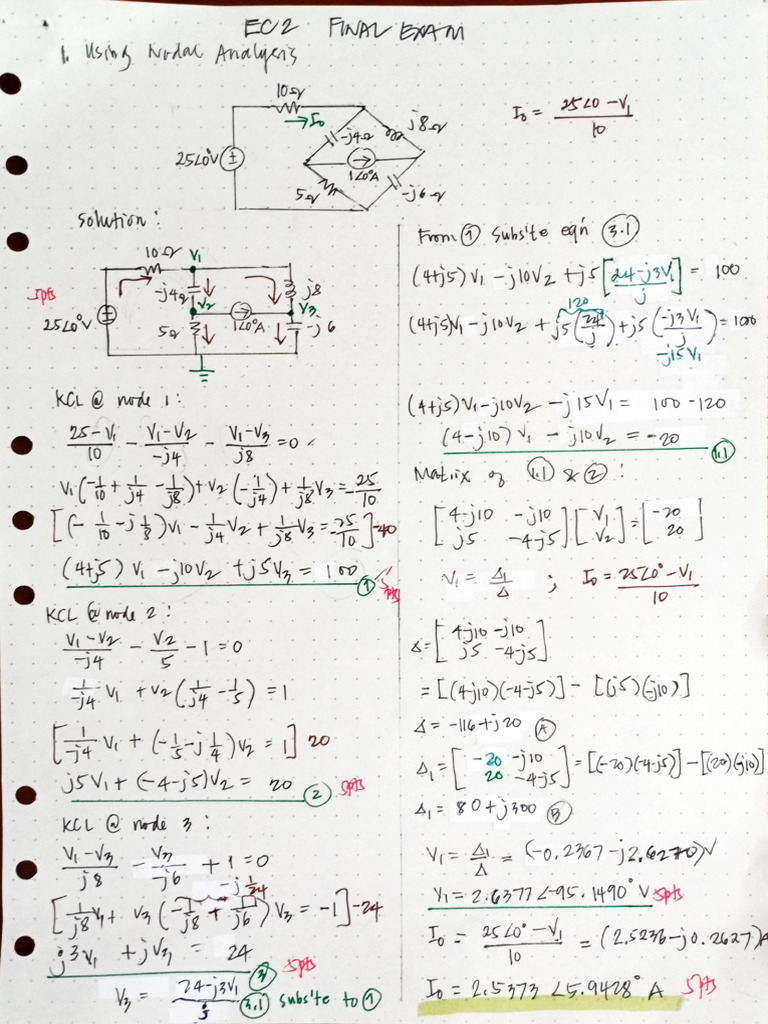 EC2 FINAL EXAM
1. Using Nodal Analysis
10Ω
→I₀
-j4Ω
j8Ω
25∠0°V
1∠0°A
5Ω
-j6Ω
I₀ = (25∠0 - V₁)/10
Solution:
10Ω
V₁
-j4Ω
j8
V₂
V₃
25∠0°V
5Ω
1∠0°A
-j6
5pts
KCL @ node 1:
(25-V₁)/10 - (V₁-V₂)/-j4 - (V₁-V₃)/j8 = 0
V₁(-1/10 + 1/j4 - 1/j8) + V₂(-1/j4) + 1/j8 V₃ = -25/10
[(-1/10 - j1/8)V₁ - 1/j4 V₂ + 1/j8 V₃ = -25/10] -40
(4+j5) V₁ - j10V₂ + j5V₃ = 100 ①
5pts
KCL @ node 2:
(V₁-V₂)/-j4 - V₂/5 - 1 = 0
1/-j4 V₁ + V₂(1/j4 - 1/5) = 1
[1/-j4 V₁ + (-1/5 - j1/4)V₂ = 1] 20
j5V₁ + (-4-j5)V₂ = 20 ②
5pts
KCL @ node 3:
(V₁-V₃)/j8 - V₃/-j6 + 1 = 0
-j1/24
[1/j8 V₁ + V₃(-1/j8 + 1/j6)V₃ = -1] -24
j3V₁ + jV₃ = 24 ③
5pts
V₃ = (24-j3V₁)/j (3.1) subs'te to ①
From ① Subs'te eq'n (3.1)
(4+j5)V₁ - j10V₂ + j5[(24-j3V₁)/j] = 100
120
(4+j5)V₁ - j10V₂ + j5(24/j) + j5(-j3V₁/j) = 100
-j15V₁
(4+j5)V₁ - j10V₂ - j15V₁ = 100 - 120
(4-j10)V₁ - j10V₂ = -20 (1.1)
Matrix of (1.1) & ②:
[4-j10 -j10] [V₁] = [-20]
[j5 -4-j5] [V₂] [20]
V₁ = Δ₁/Δ ; I₀ = (25∠0° - V₁)/10
Δ = [4-j10 -j10]
[j5 -4-j5]
= [(4-j10)(-4-j5)] - [(j5)(-j10)]
Δ = -116 + j20 (A)
Δ₁ = [-20 -j10] = [(-20)(-4-j5)] - [(20)(-j10)]
[20 -4-j5]
Δ₁ = 80 + j300 (B)
V₁ = Δ₁/Δ = (-0.2367 - j2.6270)V
V₁ = 2.6377∠-95.1490° V 5pts
I₀ = (25∠0° - V₁)/10 = (2.5236 - j0.2627)A
I₀ = 2.5373∠5.9428° A 5pts